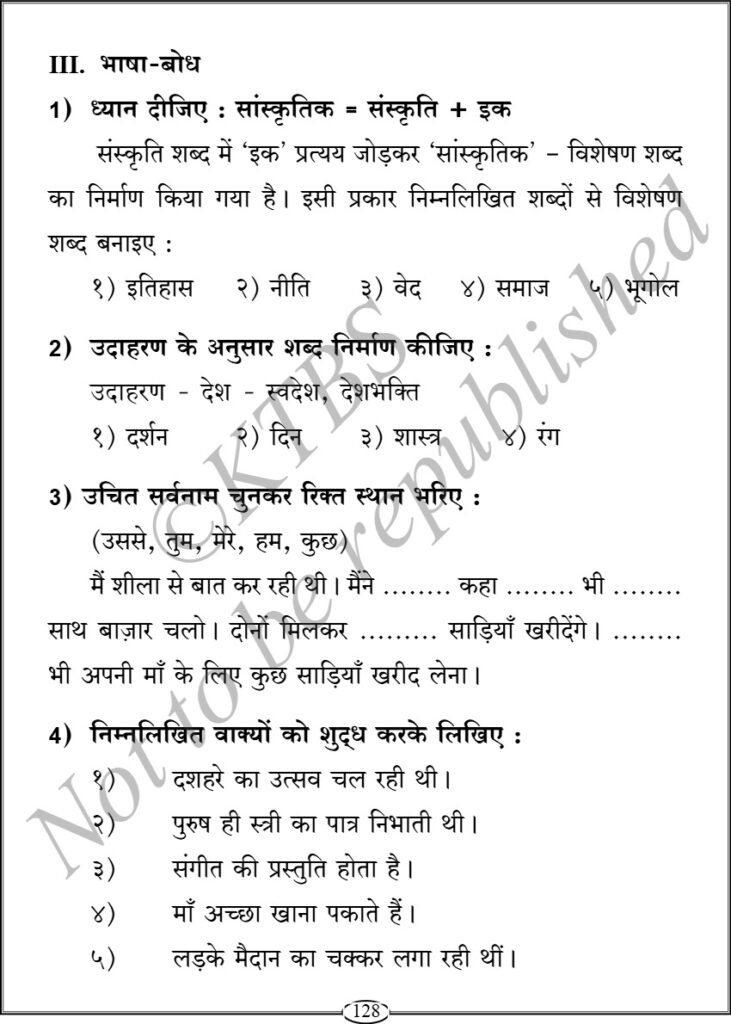 III. भाषा-बोध
1) ध्यान दीजिए : सांस्कृतिक = संस्कृति + इक
संस्कृति शब्द में ‘इक’ प्रत्यय जोड़कर ‘सांस्कृतिक’ – विशेषण शब्द
का निर्माण किया गया है। इसी प्रकार निम्नलिखित शब्दों से विशेषण
शब्द बनाइए :
१) इतिहास २) नीति ३) वेद ४) समाज ५) भूगोल
2) उदाहरण के अनुसार शब्द निर्माण कीजिए :
उदाहरण - देश - स्वदेश, देशभक्ति
१) दर्शन २) दिन ३) शास्त्र ४) रंग
3) उचित सर्वनाम चुनकर रिक्त स्थान भरिए :
(उससे, तुम, मेरे, हम, कुछ)
मैं शीला से बात कर रही थी। मैंने ........ कहा ........ भी ........
साथ बाज़ार चलो। दोनों मिलकर ......... साड़ियाँ खरीदेंगे। ........
भी अपनी माँ के लिए कुछ साड़ियाँ खरीद लेना।
4) निम्नलिखित वाक्यों को शुद्ध करके लिखिए :
१) दशहरे का उत्सव चल रही थी।
२) पुरुष ही स्त्री का पात्र निभाती थी।
३) संगीत की प्रस्तुति होता है।
४) माँ अच्छा खाना पकाते हैं।
५) लड़के मैदान का चक्कर लगा रही थीं।
128
©KTBS
Not to be republished